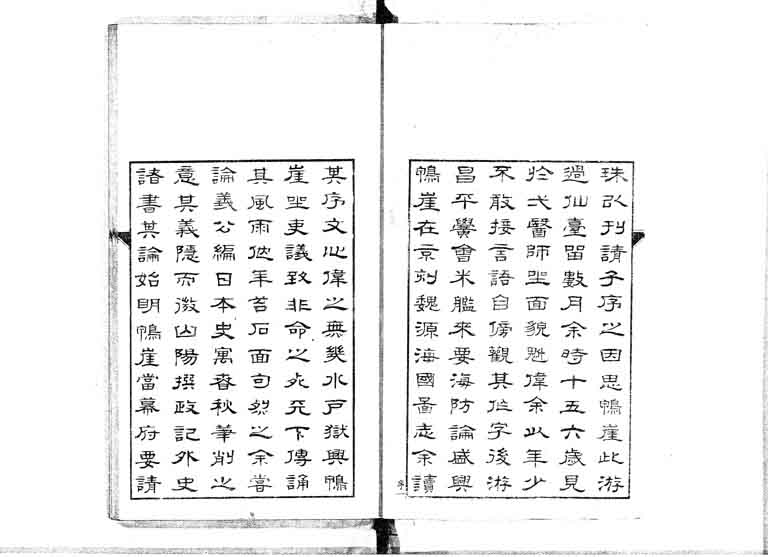 珠以刊請予序之因思鴨崖此游
過仙臺留數月余時十五六歲見
於弋醫師坐面貌魁偉余以年少
不敢接言語自傍觀其作字後游
昌平黌會米艦來要海防論盛興
鴨崖在京刻魏源海國圖志余讀
其序文心偉之無幾水戶獄興鴨
崖坐吏議致非命之死天下傳誦
其風雨他年苔石面句烈之余嘗
論義公編日本史寓春秋筆削之
意其義隱而微山陽撰政記外史
諸書其論始明鴨崖當幕府要請